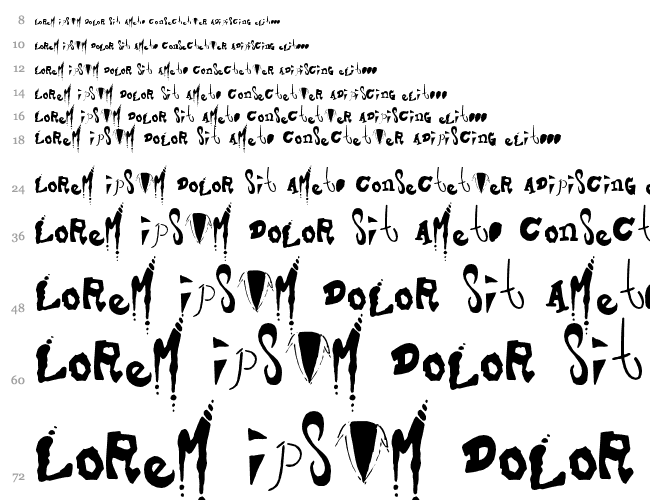 8 LoReM ipSUM DoLoR Sit AMet, ConSeCtetUeR ADipiSCinG eLit...
10 LoReM ipSUM DoLoR Sit AMet, ConSeCtetUeR ADipiSCinG eLit...
12 LoReM ipSUM DoLoR Sit AMet, ConSeCtetUeR ADipiSCinG eLit...
14 LoReM ipSUM DoLoR Sit AMet, ConSeCtetUeR ADipiSCinG eLit...
16 LoReM ipSUM DoLoR Sit AMet, ConSeCtetUeR ADipiSCinG eLit...
18 LoReM ipSUM DoLoR Sit AMet, ConSeCtetUeR ADipiSCinG eLit...
24 LoReM ipSUM DoLoR Sit AMet, ConSeCtetUeR ADipiSCinG e
36 LoReM ipSUM DoLoR Sit AMet, ConSeCt
48 LoReM ipSUM DoLoR Sit AMet
60 LoReM ipSUM DoLoR Sit
72 LoReM ipSUM DoLoR